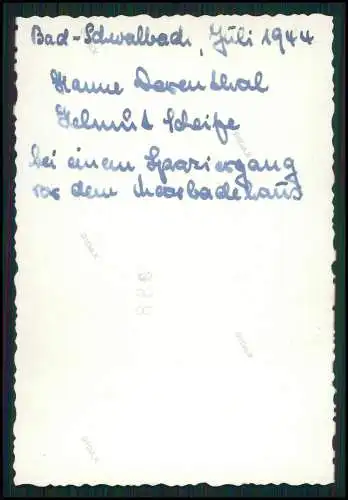 Bad-Schwalbach, Juli 1944
Hanne Daventhal
Helmut Scheipe
bei einem Spaziergang
vor dem Moorbadehaus